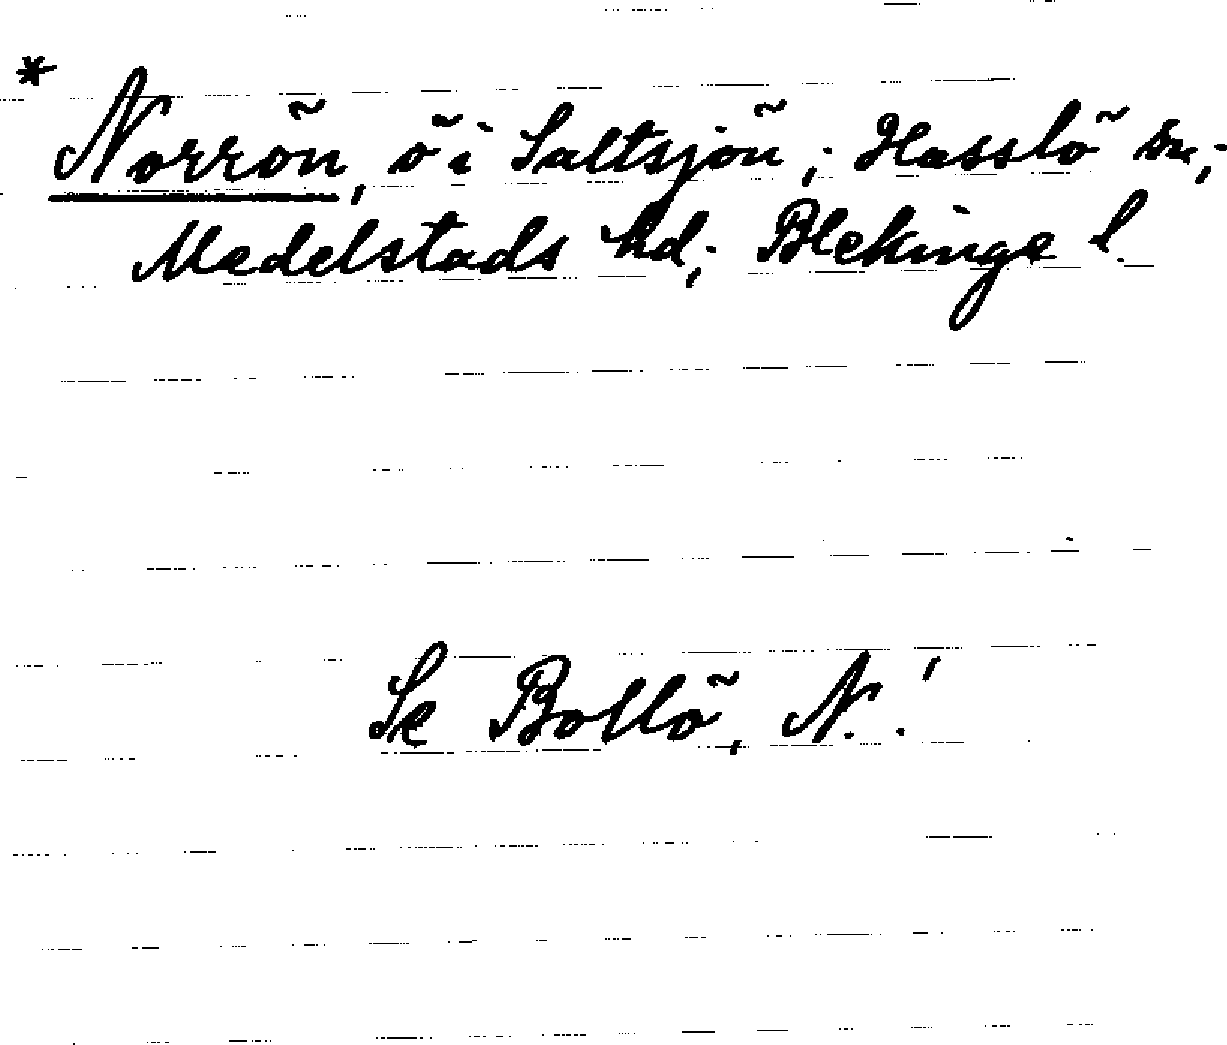 * Norrön, ö i Saltsjön; Hasslö sn;
Medelstads hd; Blekinge l.
Se Bollö, N.!